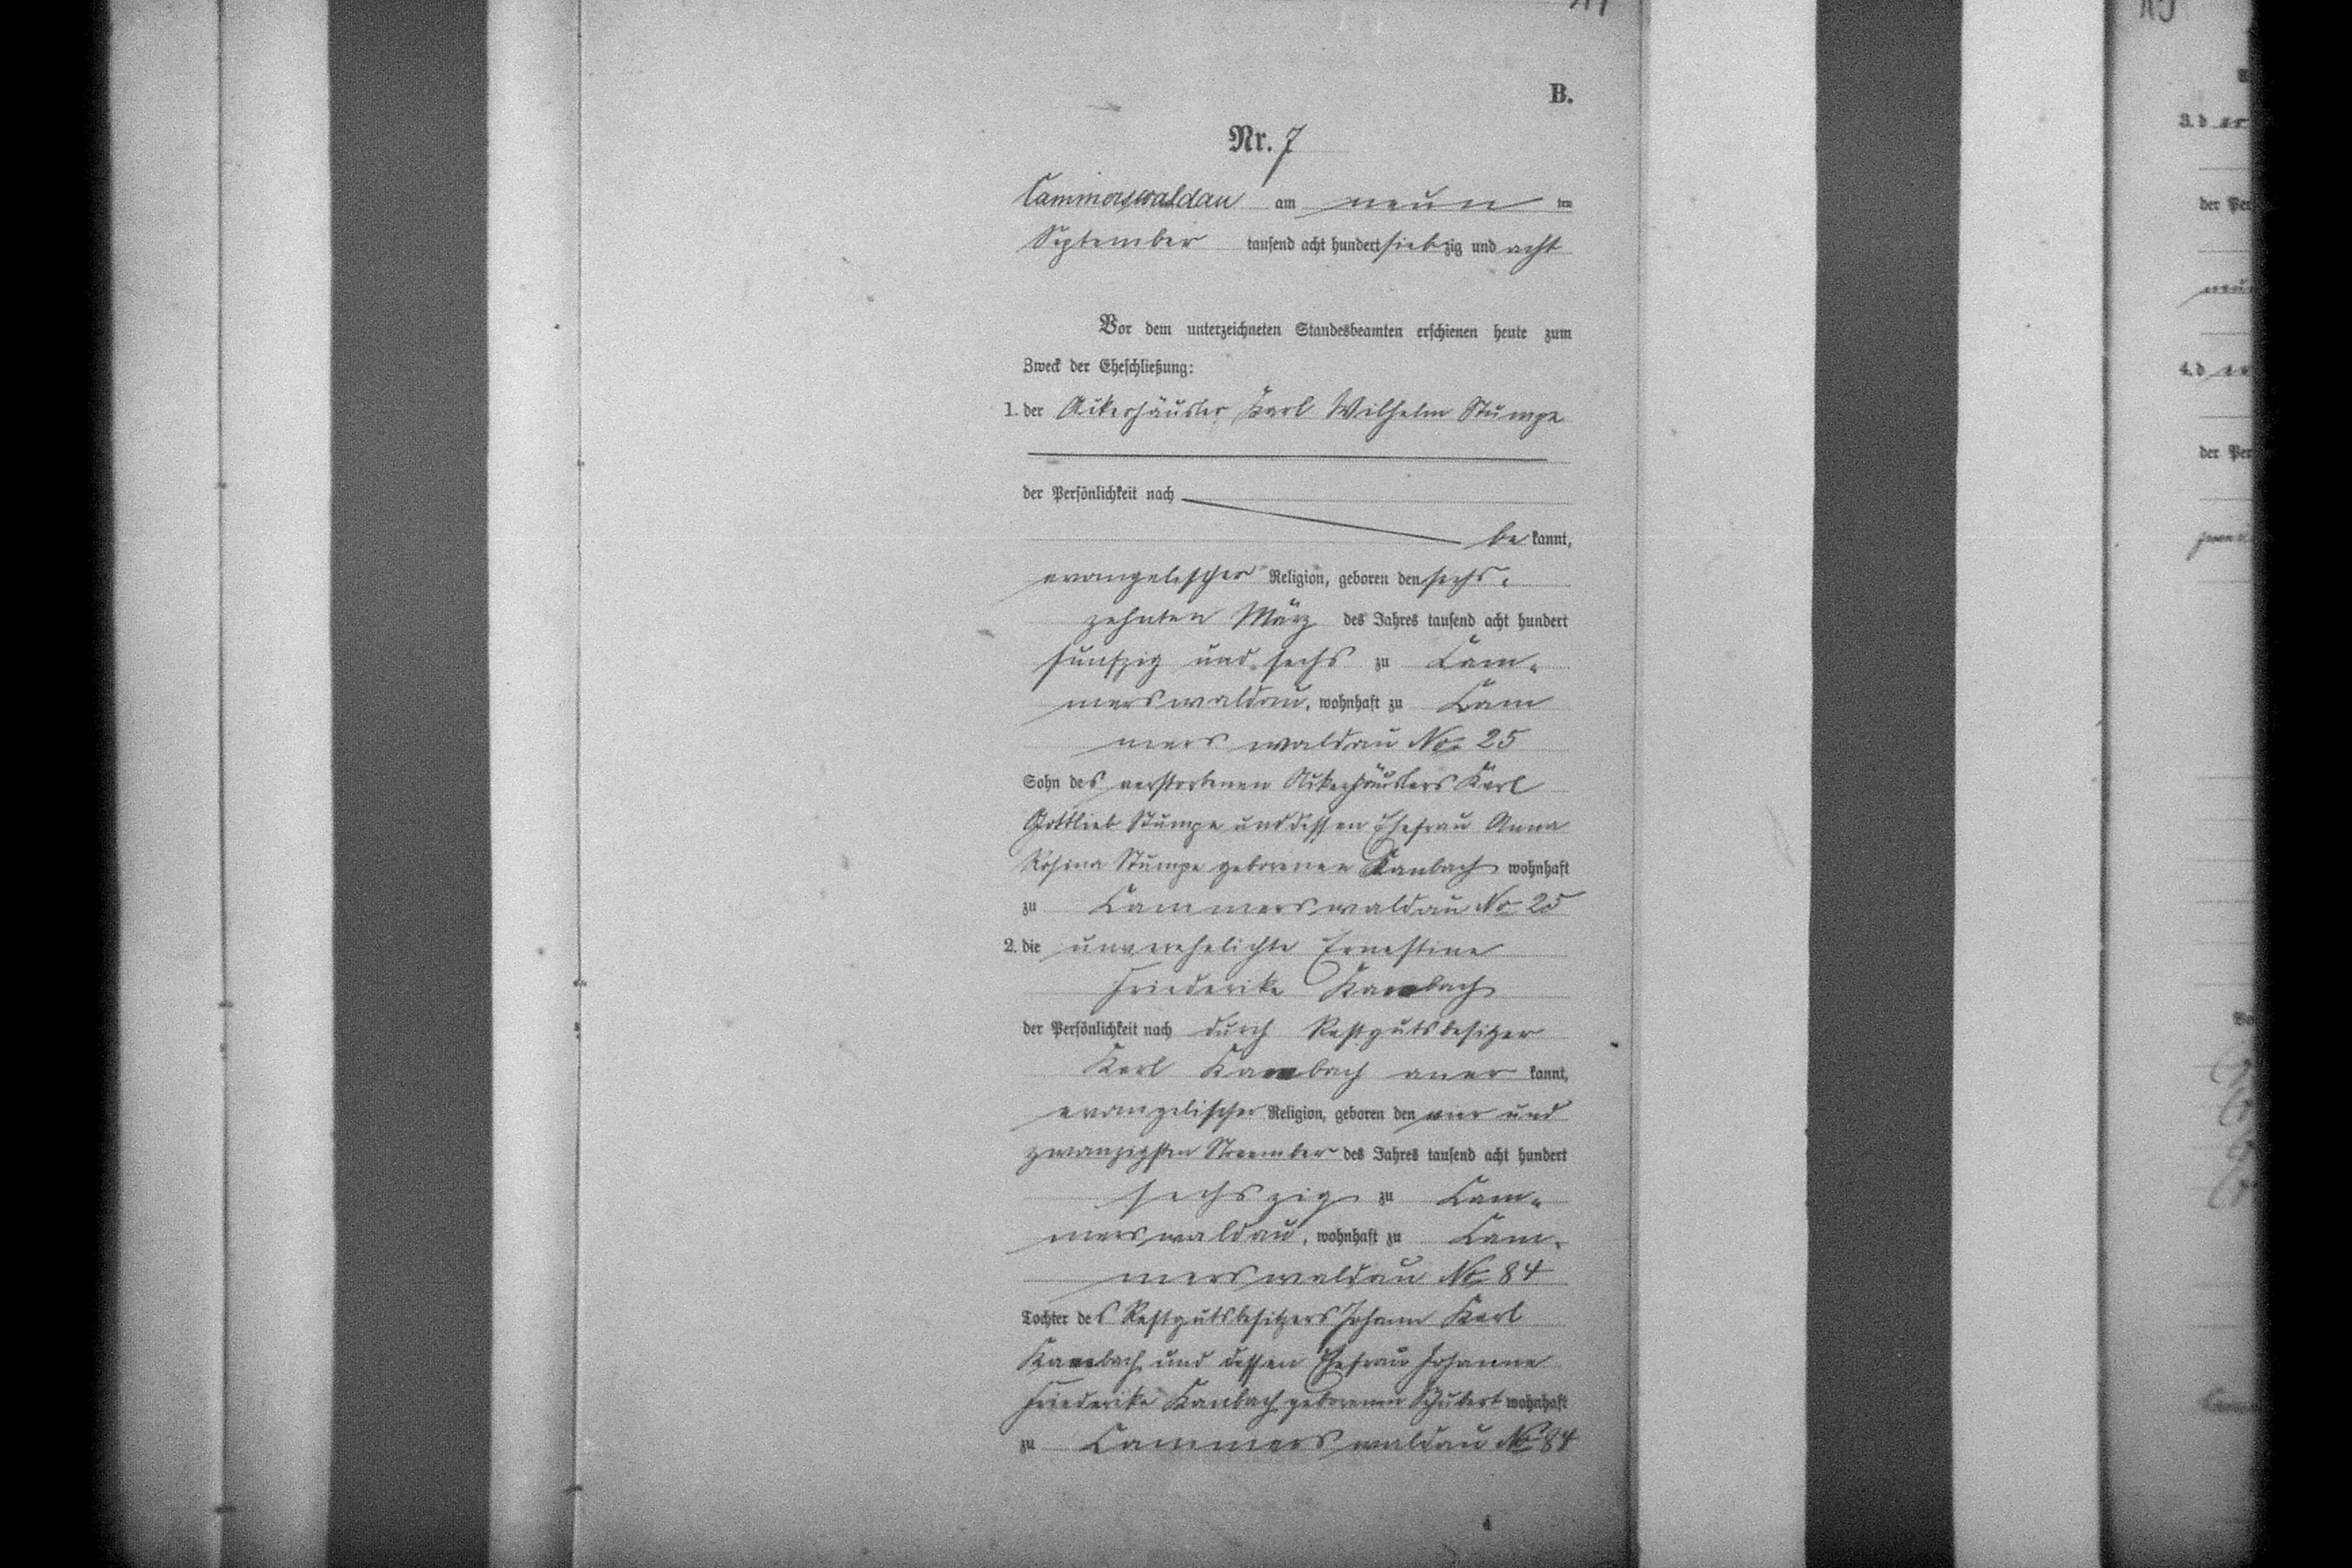 B.
Nr. 7
Cammerswaldau am neun ten
September tausend acht hundert siebzig und acht
Vor dem unterzeichneten Standesbeamten erschienen heute zum
Zweck der Eheschließung:
1. der Ackerhäusler Karl Wilhelm Stumpe
der Persönlichkeit nach
be kannt,
evangelischer Religion, geboren den sechs-
zehnten März des Jahres tausend acht hundert
fünfzig und sechs zu Cam-
merswaldau, wohnhaft zu Cam
merswaldau No. 25
Sohn des verstorbenen Ackerhäuslers Karl
Gottlieb Stumpe und dessen Ehefrau Anna
Rosina Stumpe geborenen Kanbach wohnhaft
zu Cammerswaldau No 25
2. die unverehelichte Ernestine
Friederike Kambach
der Persönlichkeit nach durch Restgutsbesitzer
Karl Kambach aner kannt,
evangelischer Religion, geboren den vier und
zwanzigsten November des Jahres tausend acht hundert
sechszig zu Cam-
merswaldau, wohnhaft zu Cam-
merswaldau No 84
Tochter des Restgutsbesitzers Johann Karl
Kambach und dessen Ehefrau Johanne
Friederike Kanbach geborenen Schubert wohnhaft
zu Cammerswaldau No 84
3. d er
der Per
4. d er
der Per